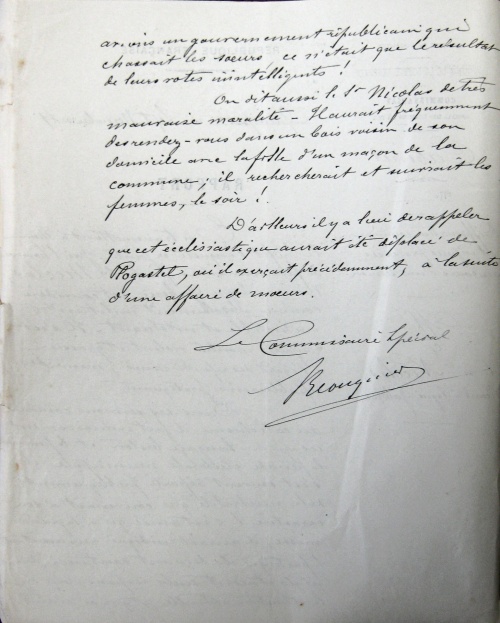 avions un gouvernement républicain qui
chassait les sœurs ce n'était que le résultat
de leurs votes inintelligents !
On dit aussi le Sr Nicolas de très
mauvaise moralité - Il aurait fréquemment
des rendez-vous dans un bois voisin de son
domicile avec la fille d'un maçon de la
commune ; il rechercherait et suivrait les
femmes, le soir !.
D'ailleurs il y a lieu de rappeler
que cet écclésiastique aurait été déplacé de
Plogastel, où il exerçait précédemment, à la suite
d'une affaire de mœurs.
Le Commissaire Spécial